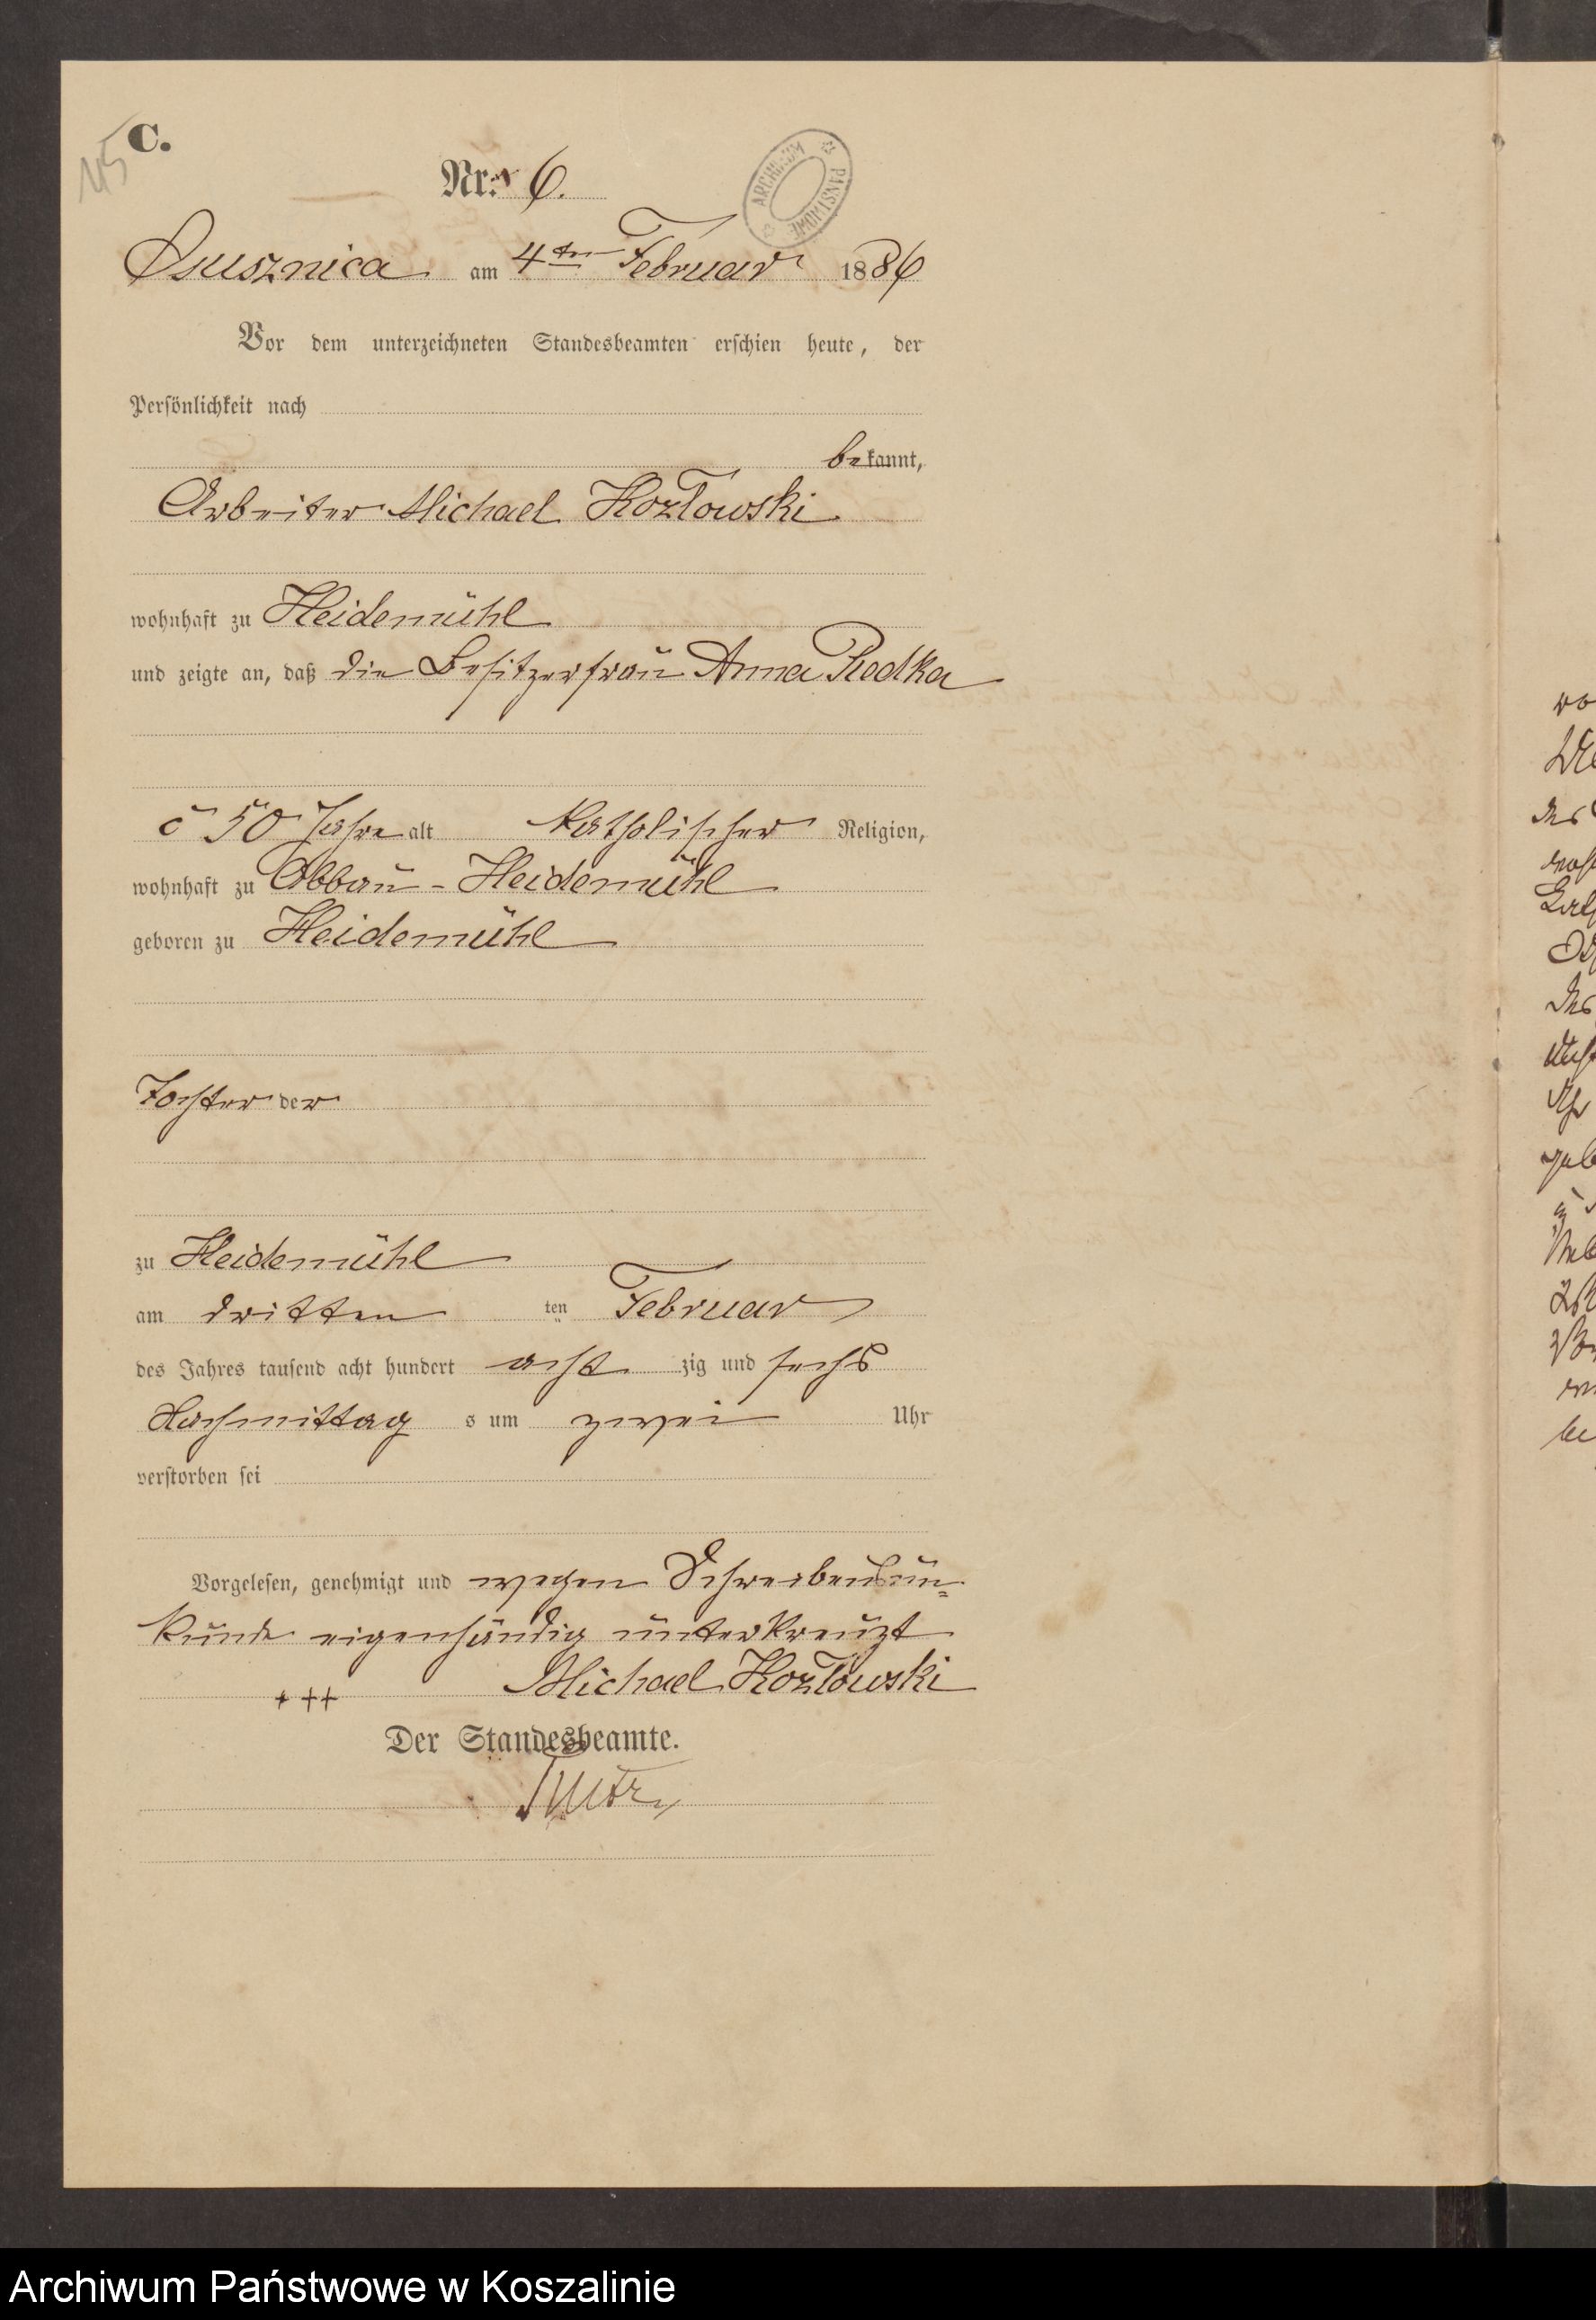 C.
115
Nr. 6.
ARCHIWUM PAŃSTWOWE
Osusznica am 4ten Februar 1886
Vor dem unterzeichneten Standesbeamten erschien heute, der
Persönlichkeit nach
bekannt,
Arbeiter Michael Kozłowski
wohnhaft zu Heidemühl
und zeigte an, daß die Besitzerfrau Anna Redka
c 50 Jahre alt katholischer Religion,
wohnhaft zu Abbau-Heidemühl
geboren zu Heidemühl
Tochter der
zu Heidemühl
am dritten ten Februar
des Jahres tausend acht hundert acht zig und sechs
Nachmittag s um zwei Uhr
verstorben sei
Vorgelesen, genehmigt und wegen Schreibensun-
kunde eigenhändig unterkreuzt
+++ Michael Kozłowski
Der Standesbeamte.
Archiwum Państwowe w Koszalinie